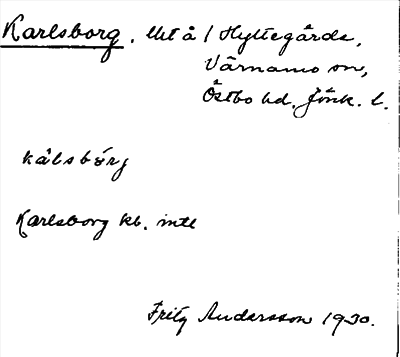 Karlsborg. Utå / Hyltegärde,
Värnamo sn,
Östbo hd. Jönk. l.
kálsbórg
Karlsborg kb. intl
Fritz Andersson 1930.